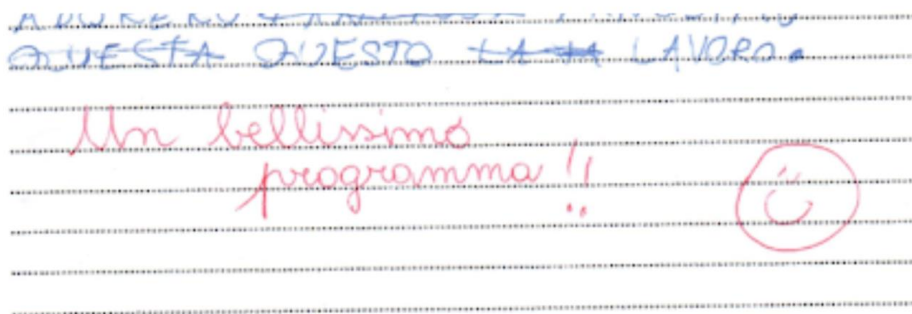 ADORERO
QUESTA QUESTO LA LAVORO.
Un bellissimo
programma!!